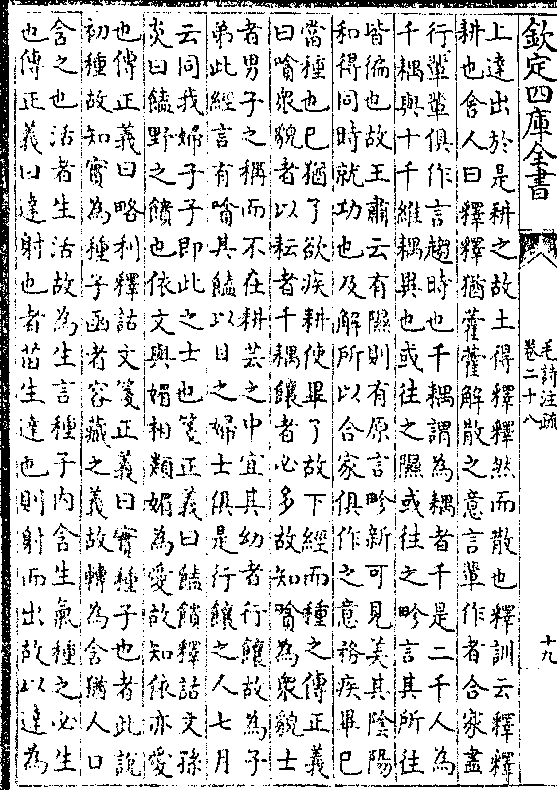 欽定四庫全書
毛詩注疏
卷二十八
十九
上達出於是耕之故土得釋釋然而散也釋訓云釋釋
耕也舍人曰釋釋猶藿藿解散之意言輩作者合家盡
行輩輩俱作言趨時也千耦謂為耦者千是二千人為
千耦與十千維耦與也或往之隰或往之畛言其所往
皆徧也故王肅云有隰則有原言畛新可見美其陰陽
和得同時就功也及解所以合家俱作之意務疾畢已
當種也已猶了欲疾耕使畢了故下經而種之傳正義
曰嗿眾貌者以耘者千耦饟者必多故知嗿為眾貌士
者男子之稱而不在耕芸之中宜其幼者行饟故為子
弟此經言有嗿其饁以目之婦士俱是行饟之人七月
云同我婦子子即此之士也箋正義曰饁饋釋詁文孫
炎曰饁野之饋也依文與媚相類媚為愛故知依亦愛
也傳正義曰略利釋詁文箋正義曰實種子也者此說
初種故知實為種子函者容藏之義故轉為含猶人口
含之也活者生活故為生言種子內含生氣種之必生
也傳正義曰達射也者苗生達也則射而出故以達為